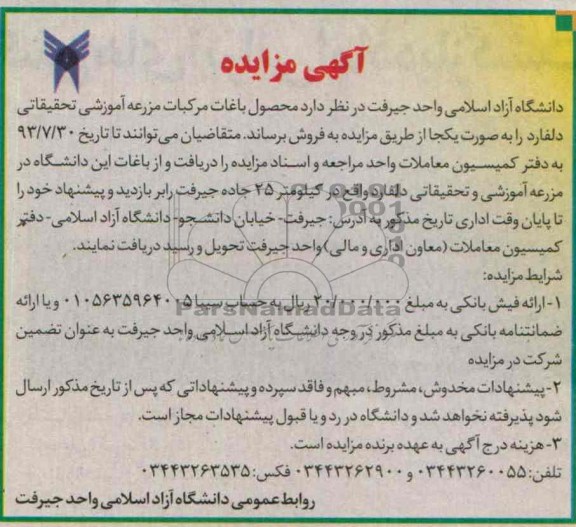 آگهی مزایده
دانشگاه آزاد اسلامی واحد جیرفت در نظر دارد محصول باغات مرکبات مزرعه آموزشی تحقیقاتی
دلفارد را به صورت یکجا از طریق مزایده به فروش برساند. متقاضیان می‌توانند تا تاریخ ۹۳/۷/۳۰
به دفتر کمیسیون معاملات واحد مراجعه و اسناد مزایده را دریافت و از باغات این دانشگاه در
مزرعه آموزشی و تحقیقاتی دلفارد واقع در کیلومتر ۲۵ جاده جیرفت رابر بازدید و پیشنهاد خود را
تا پایان وقت اداری تاریخ مذکور به آدرس: جیرفت- خیابان دانشجو- دانشگاه آزاد اسلامی- دفتر
کمیسیون معاملات (معاون اداری و مالی) واحد جیرفت تحویل و رسید دریافت نمایند.
شرایط مزایده:
۱- ارائه فیش بانکی به مبلغ ۲۰/۰۰۰/۰۰۰ ریال به حساب سیبا ۰۱۰۵۶۳۵۹۶۴۰۰۵ و یا ارائه
ParsNamadData
ضمانتنامه بانکی به مبلغ مذکور در وجه دانشگاه آزاد اسلامی واحد جیرفت به عنوان تضمین
شرکت در مزایده
۲- پیشنهادات مخدوش، مشروط، مبهم و فاقد سپرده و پیشنهاداتی که پس از تاریخ مذکور ارسال
شود پذیرفته نخواهد شد و دانشگاه در رد و یا قبول پیشنهادات مجاز است.
۳- هزینه درج آگهی به عهده برنده مزایده است.
تلفن: ۰۳۴۴۳۲۶۰۰۵۵ و ۰۳۴۴۳۲۶۲۹۰۰ فکس: ۰۳۴۴۳۲۶۳۵۳۵
روابط عمومی دانشگاه آزاد اسلامی واحد جیرفت